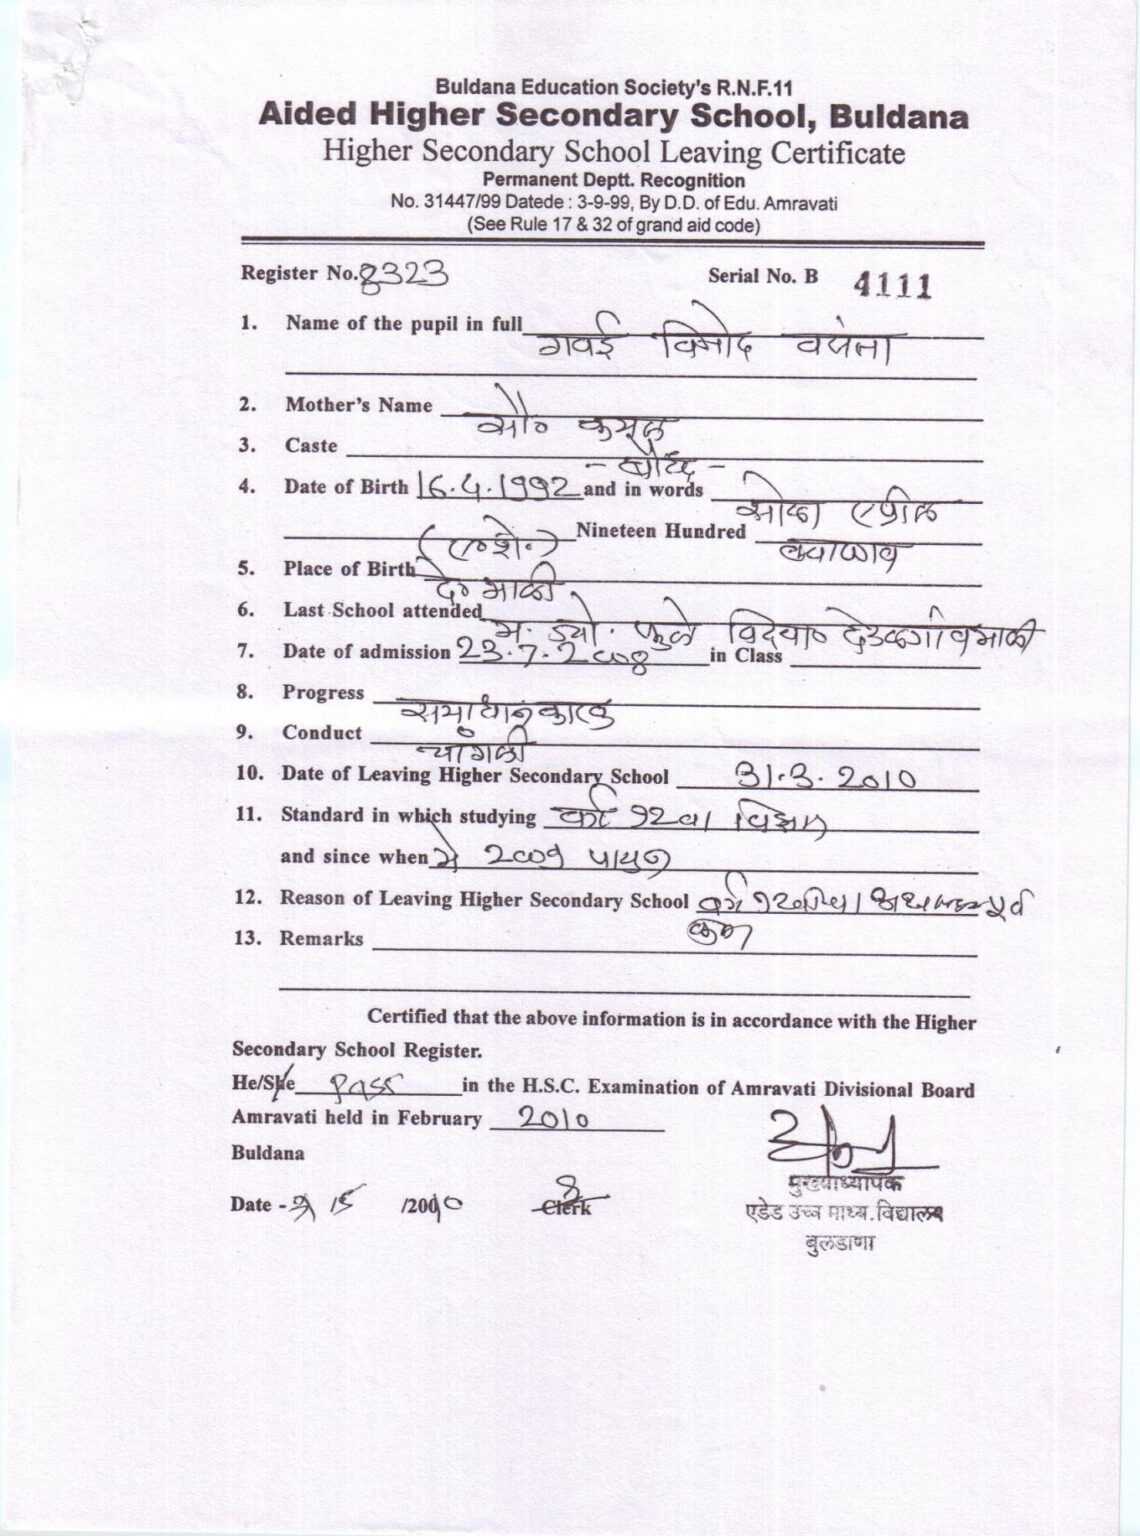 Buldana Education Society's R.N.F.11
Aided Higher Secondary School, Buldana
Higher Secondary School Leaving Certificate
Permanent Deptt. Recognition
No. 31447/99 Datede : 3-9-99, By D.D. of Edu. Amravati
(See Rule 17 & 32 of grand aid code)
Register No. 8323 Serial No. B 4111
1. Name of the pupil in full गवई विनोद वसंता
2. Mother's Name सौ०
3. Caste - बौद्ध -
4. Date of Birth 16.4.1992 and in words सोळा एप्रील
Nineteen Hundred ब्याण्णव
5. Place of Birth दे० माळी
6. Last School attended म. ज्यो. फुले विद्या० देउळगांव माळी
7. Date of admission 23.7.2008 in Class
8. Progress समाधानकारक
9. Conduct चांगली
10. Date of Leaving Higher Secondary School 31.3.2010
11. Standard in which studying वर्ग १२वा विज्ञान
and since when जुन 2009 पासुन
12. Reason of Leaving Higher Secondary School वर्ग
13. Remarks
Certified that the above information is in accordance with the Higher
Secondary School Register.
He/She Pass in the H.S.C. Examination of Amravati Divisional Board
Amravati held in February 2010
Buldana
Date - /5 /2010 Clerk
मुख्याध्यापक
एडेड उच्च माध्य. विद्यालय
बुलडाणा